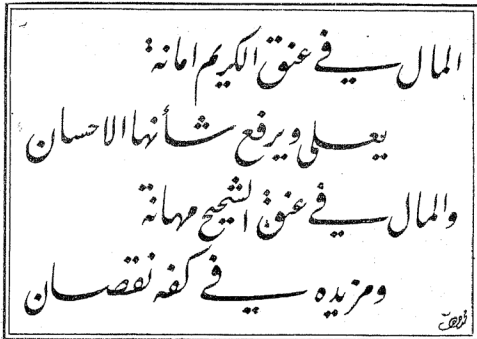 المال في عنق الكريم امانة
يعلى ويرفع شأنها الاحسان
والمال في عنق الشحيح مهانة
ومزيده في كفه نقصان